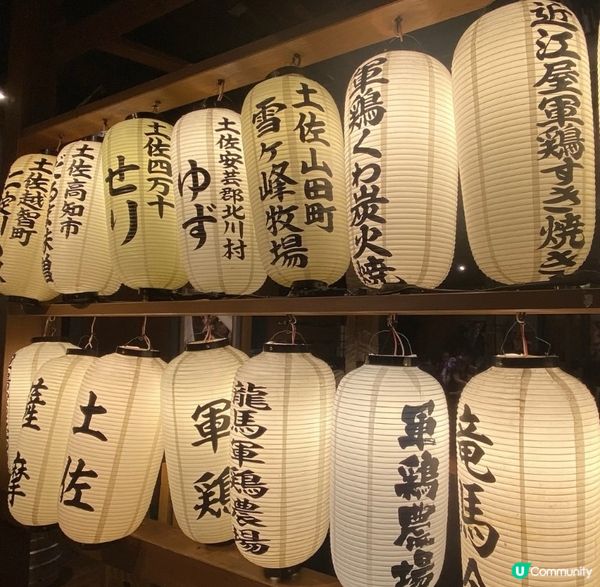 土佐越智町
土佐高知市
土佐四万十
せり
土佐安芸郡北川村
ゆず
土佐山田町
雪ヶ峰牧場
軍鶏くわ炭火焼
近江屋軍鶏すき焼き
薩摩
土佐
軍鶏
龍馬軍鶏農場
軍鶏農場
竜馬
U Community